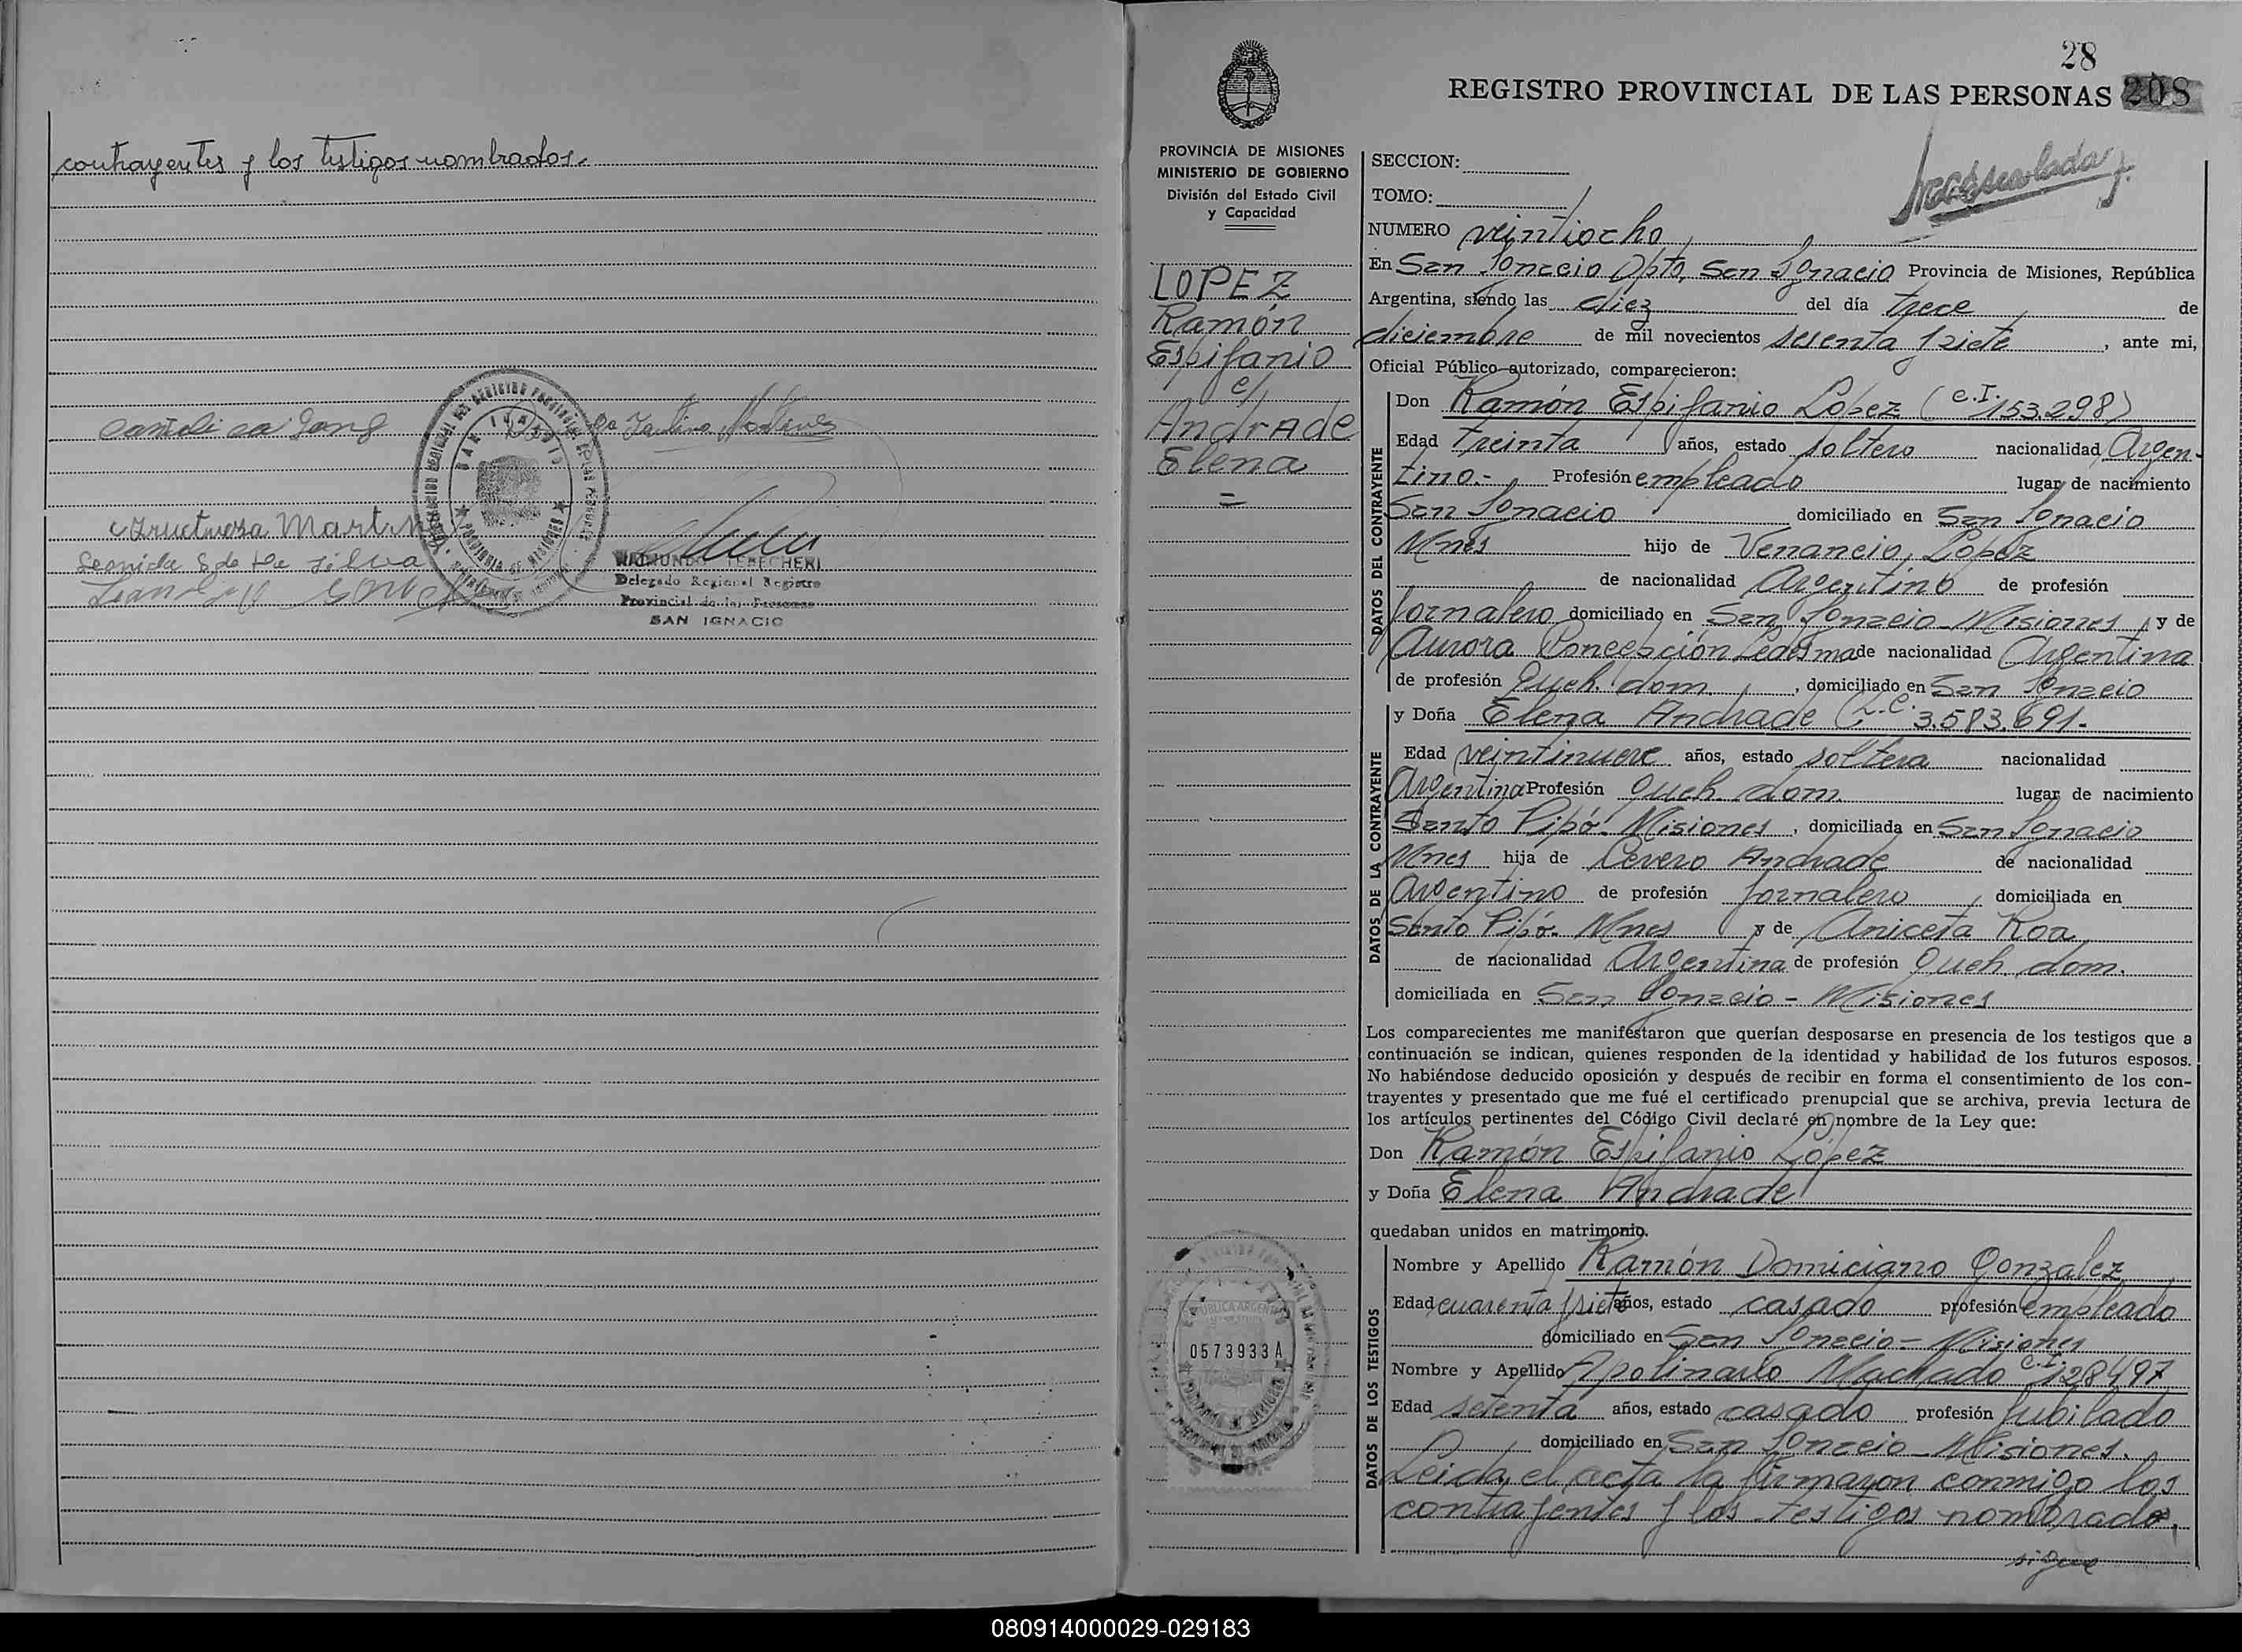 contrayentes y los testigos nombrados.
SAN IGNACIO
PROVINCIA DE MISIONES
Fructuosa Martin
Leonida S de Da Silva
RAIMUNDO TERECHERI
Delegado Regional Registro
Provincial de las Personas
SAN IGNACIO
28
REGISTRO PROVINCIAL DE LAS PERSONAS 208
PROVINCIA DE MISIONES
MINISTERIO DE GOBIERNO
División del Estado Civil
y Capacidad
LOPEZ
Ramón
Espifanio
c/
Andrade
Elena
=
SECCION:
TOMO:
NUMERO veintiocho
En San Ignacio Dpto, San Ignacio Provincia de Misiones, República
Argentina, siendo las diez del día trece de
diciembre de mil novecientos sesenta y siete, ante mi,
Oficial Público autorizado, comparecieron:
DATOS DEL CONTRAYENTE
Don Ramón Espifanio López (C.I. 153.298)
Edad treinta años, estado soltero nacionalidad Argen-
tino.- Profesión empleado lugar de nacimiento
San Ignacio domiciliado en San Ignacio
Mnes hijo de Venancio López
de nacionalidad Argentino de profesión
Jornalero domiciliado en San Ignacio - Misiones, y de
Aurora Concepción Ledesma de nacionalidad Argentina
de profesión Queh. dom., domiciliado en San Ignacio
DATOS DE LA CONTRAYENTE
y Doña Elena Andrade L.C. 3.583.691.-
Edad veintinueve años, estado soltera nacionalidad
Argentina Profesión Queh. dom. lugar de nacimiento
Santo Pipó. Misiones, domiciliada en San Ignacio
Mnes hija de Cevero Andrade de nacionalidad
Argentino de profesión Jornalero domiciliada en
Santo Pipó- Mnes y de Aniceta Roa
de nacionalidad Argentina de profesión Queh. dom.
domiciliada en San Ignacio - Misiones
Los comparecientes me manifestaron que querían desposarse en presencia de los testigos que a
continuación se indican, quienes responden de la identidad y habilidad de los futuros esposos.
No habiéndose deducido oposición y después de recibir en forma el consentimiento de los con-
trayentes y presentado que me fué el certificado prenupcial que se archiva, previa lectura de
los artículos pertinentes del Código Civil declaré en nombre de la Ley que:
Don Ramón Espifanio López
y Doña Elena Andrade
quedaban unidos en matrimonio.
DATOS DE LOS TESTIGOS
Nombre y Apellido Ramón Domiciano Gonzalez
Edad cuarenta y siete años, estado casado profesión empleado
domiciliado en San Ignacio - Misiones
Nombre y Apellido Apolinario Machado C.I. 128497
Edad setenta años, estado casado profesión Jubilado
domiciliado en San Ignacio - Misiones.
Leida el acta la firmaron conmigo los
contrayentes y los testigos nombrados,
sigue
REPUBLICA ARGENTINA
0573933 A
080914000029-029183